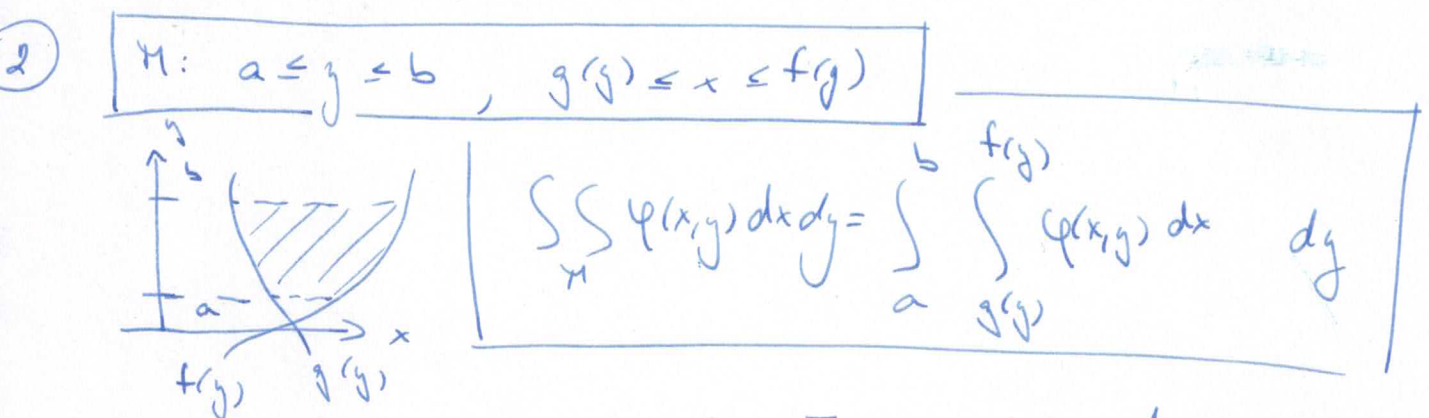 ② M: a ≤ y ≤ b , g(y) ≤ x ≤ f(y)
y
b
a
x
f(y) g(y)
∫∫_M φ(x,y) dx dy = ∫_a^b ∫_{g(y)}^{f(y)} φ(x,y) dx dy